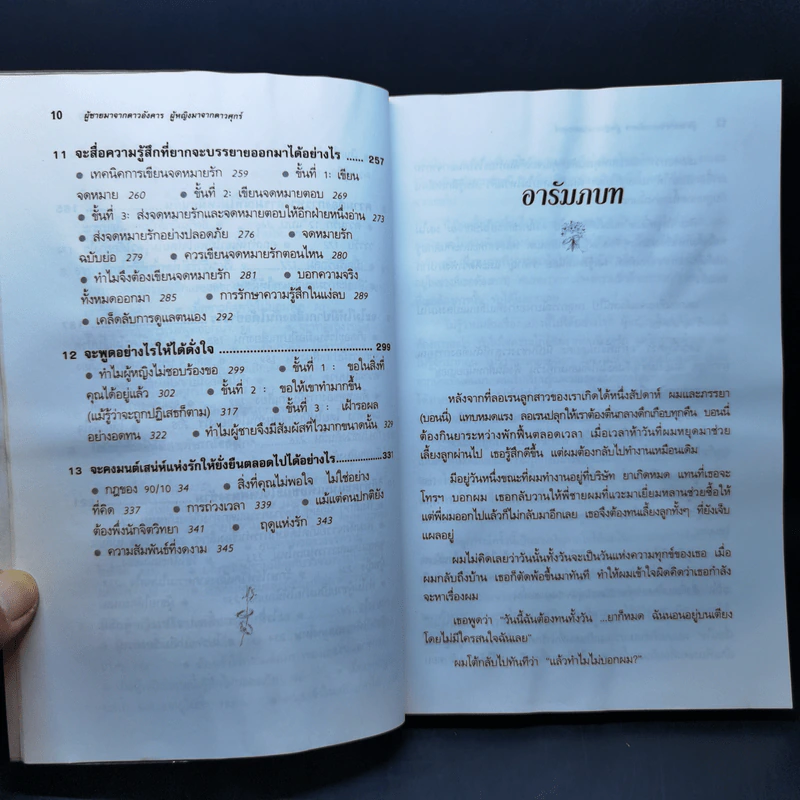 10 ผู้ชายมาจากดาวอังคาร ผู้หญิงมาจากดาวศุกร์
11 จะสื่อความรู้สึกที่ยากจะบรรยายออกมาได้อย่างไร ...... 257
● เทคนิคการเขียนจดหมายรัก 259 ● ขั้นที่ 1: เขียน
จดหมาย 260 ● ขั้นที่ 2: เขียนจดหมายตอบ 269
● ขั้นที่ 3: ส่งจดหมายรักและจดหมายตอบให้อีกฝ่ายหนึ่งอ่าน 273
● ส่งจดหมายรักอย่างปลอดภัย 276 ● จดหมายรัก
ฉบับย่อ 279 ● ควรเขียนจดหมายรักตอนไหน 280
● ทำไมจึงต้องเขียนจดหมายรัก 281 ● บอกความจริง
ทั้งหมดออกมา 285 ● การรักษาความรู้สึกในแง่ลบ 289
● เคล็ดลับการดูแลตนเอง 292
12 จะพูดอย่างไรให้ได้ดั่งใจ ........................................ 299
● ทำไมผู้หญิงไม่ชอบร้องขอ 299 ● ขั้นที่ 1 : ขอในสิ่งที่
คุณได้อยู่แล้ว 302 ● ขั้นที่ 2 : ขอให้เขาทำมากขึ้น
(แม้รู้ว่าจะถูกปฏิเสธก็ตาม) 317 ● ขั้นที่ 3 : เฝ้ารอผล
อย่างอดทน 322 ● ทำไมผู้ชายจึงมีสัมผัสที่ไวมากขนาดนั้น
13 จะคงมนต์เสน่ห์แห่งรักให้ยั่งยืนตลอดไปได้อย่างไร..........331
● กฎของ 90/10 34 ● สิ่งที่คุณไม่พอใจ ไม่ใช่อย่าง
ที่คิด 337 ● การถ่วงเวลา 339 ● แม้แต่คนปกติยัง
ต้องพึ่งนักจิตวิทยา 341 ● ฤดูแห่งรัก 343
● ความสัมพันธ์ที่งดงาม 345
อารัมภบท
หลังจากที่ลอเรนลูกสาวของเราเกิดได้หนึ่งสัปดาห์ ผมและภรรยา
(บอนนี่) แทบหมดแรง ลอเรนปลุกให้เราต้องตื่นกลางดึกเกือบทุกคืน บอนนี่
ต้องกินยาระหว่างพักฟื้นตลอดเวลา เมื่อเวลาห้าวันที่ผมหยุดมาช่วย
เลี้ยงลูกผ่านไป เธอรู้สึกดีขึ้น แต่ผมต้องกลับไปทำงานเหมือนเดิม
มีอยู่วันหนึ่งขณะที่ผมทำงานอยู่ที่บริษัท ยาเกิดหมด แทนที่เธอจะ
โทรฯ บอกผม เธอกลับวานให้พี่ชายผมที่แวะมาเยี่ยมหลานช่วยซื้อให้
แต่พี่ผมออกไปแล้วก็ไม่กลับมาอีกเลย เธอจึงต้องทนเลี้ยงลูกทั้งๆ ที่ยังเจ็บ
แผลอยู่
ผมไม่คิดเลยว่าวันนั้นทั้งวันจะเป็นวันแห่งความทุกข์ของเธอ เมื่อ
ผมกลับถึงบ้าน เธอก็ตัดพ้อขึ้นมาทันที ทำให้ผมเข้าใจผิดคิดว่าเธอกำลัง
จะหาเรื่องผม
เธอพูดว่า "วันนี้ฉันต้องทนทั้งวัน ...ยาก็หมด ฉันนอนอยู่บนเตียง
โดยไม่มีใครสนใจฉันเลย"
ผมโต้กลับไปทันทีว่า "แล้วทำไมไม่บอกผม?"